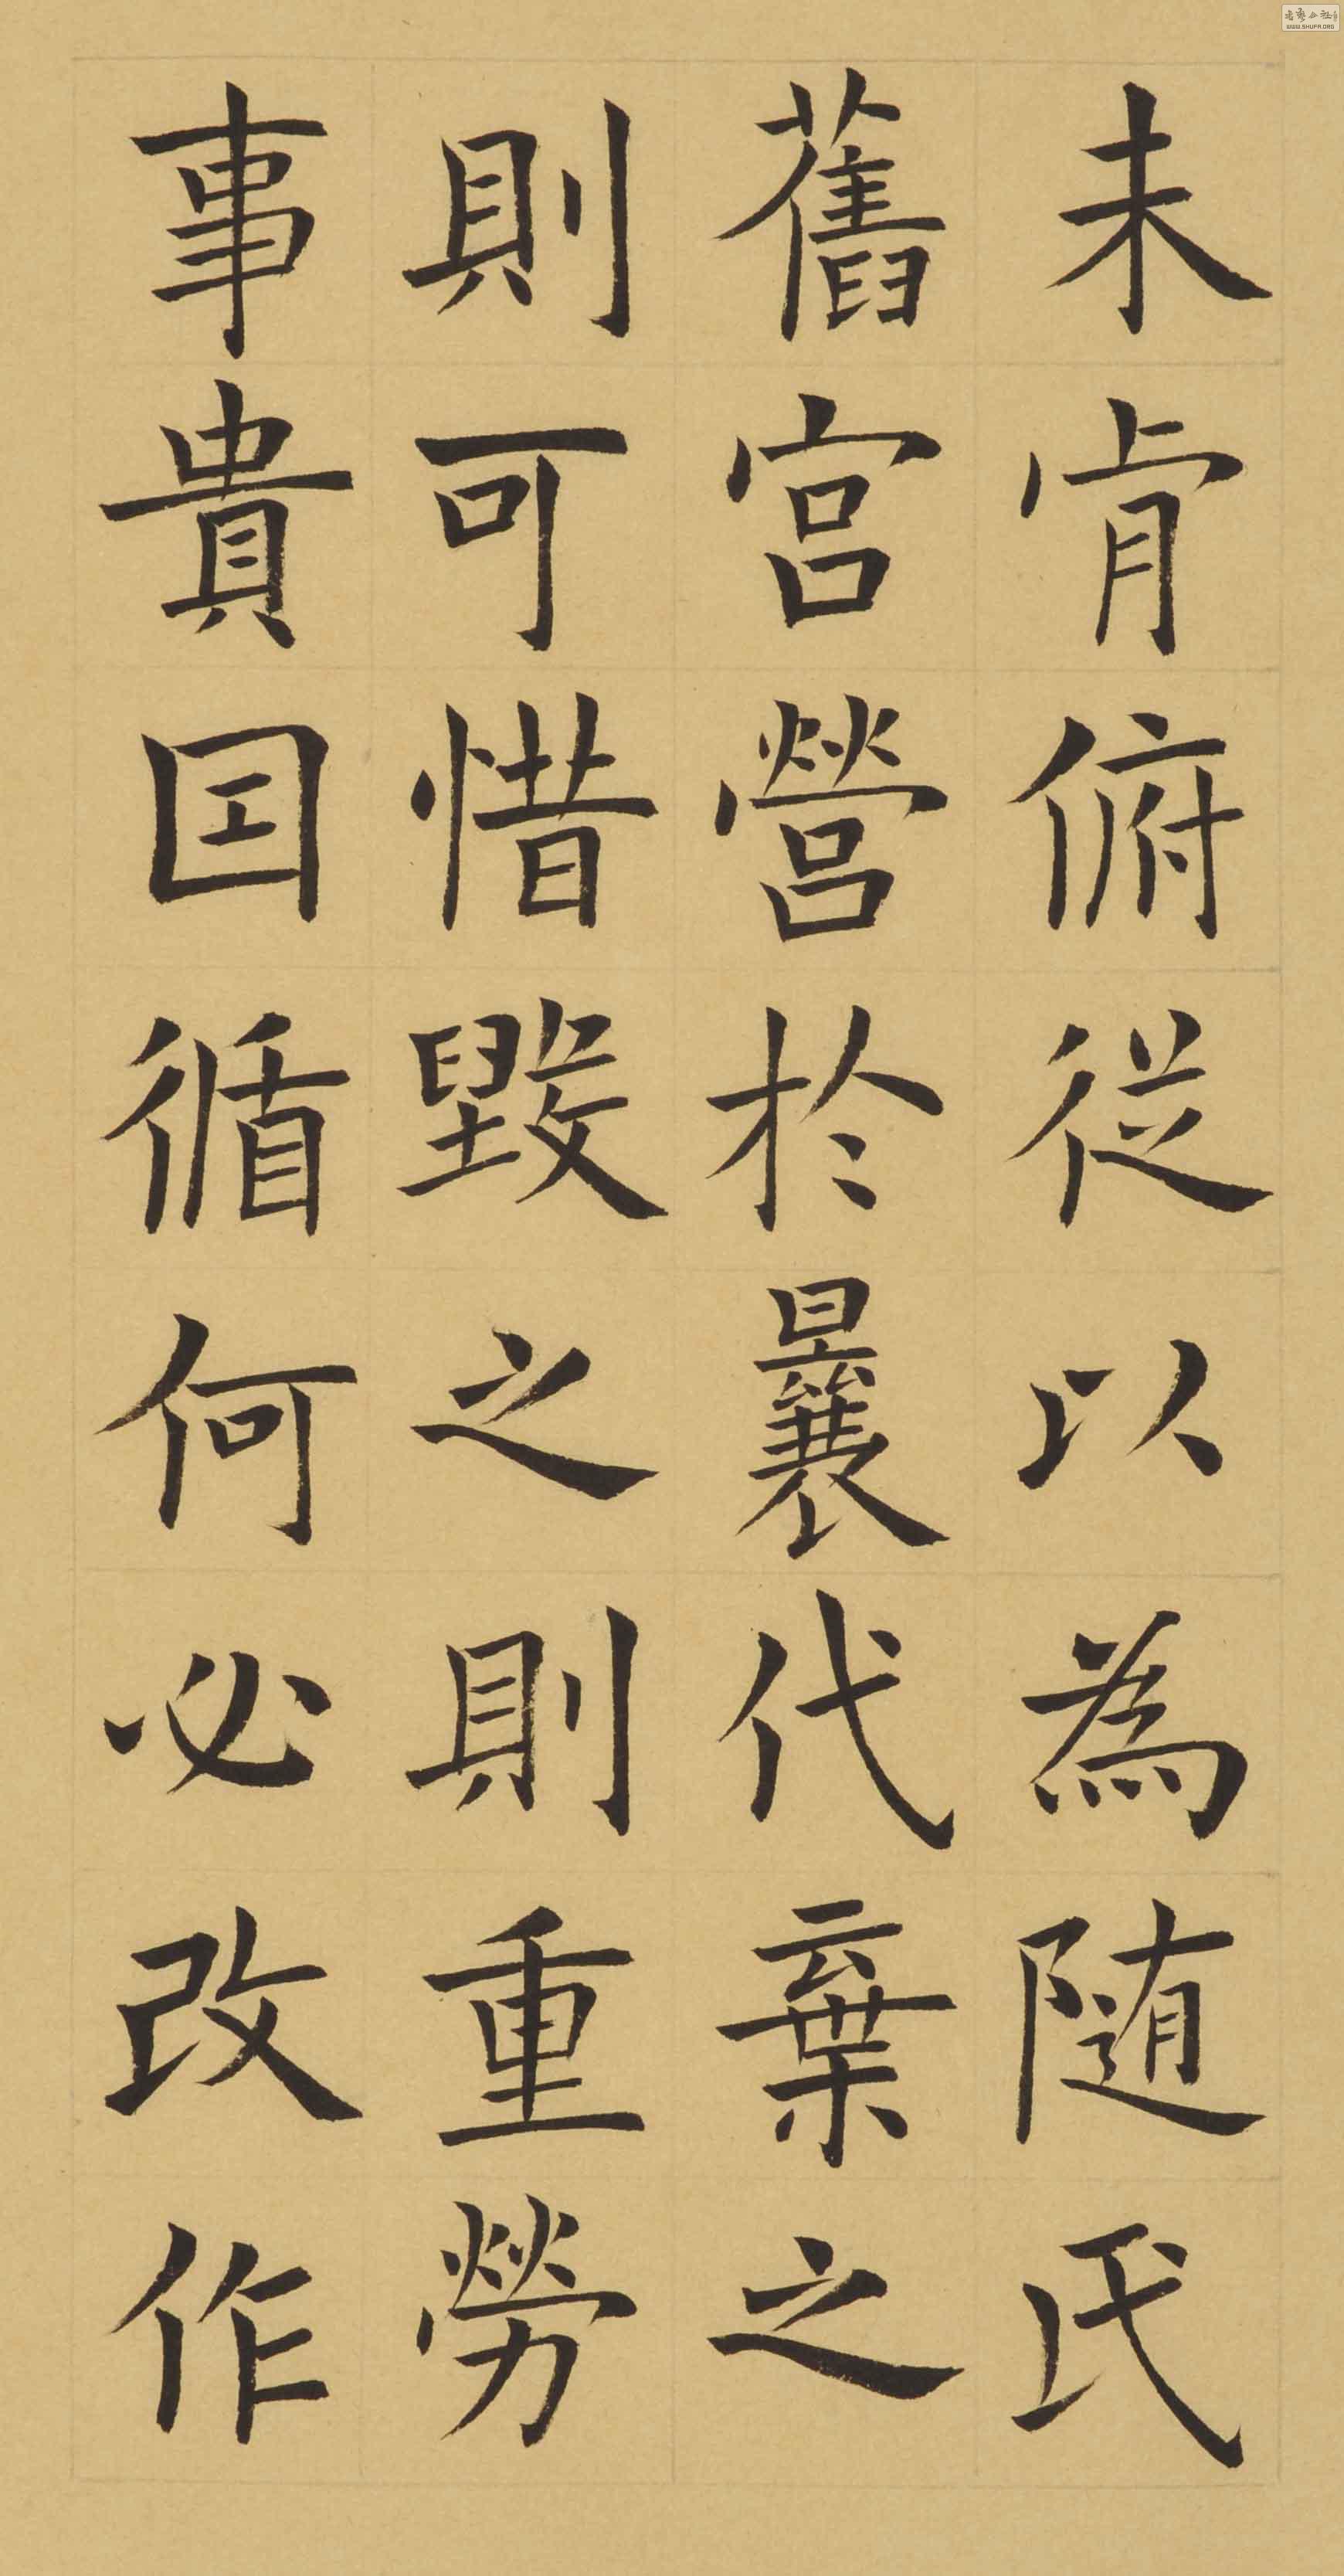 未肯俯従以為随氏
舊宮營於曩代棄之
則可惜毀之則重勞
事貴因循何必改作
WWW.SHUFA.ORG